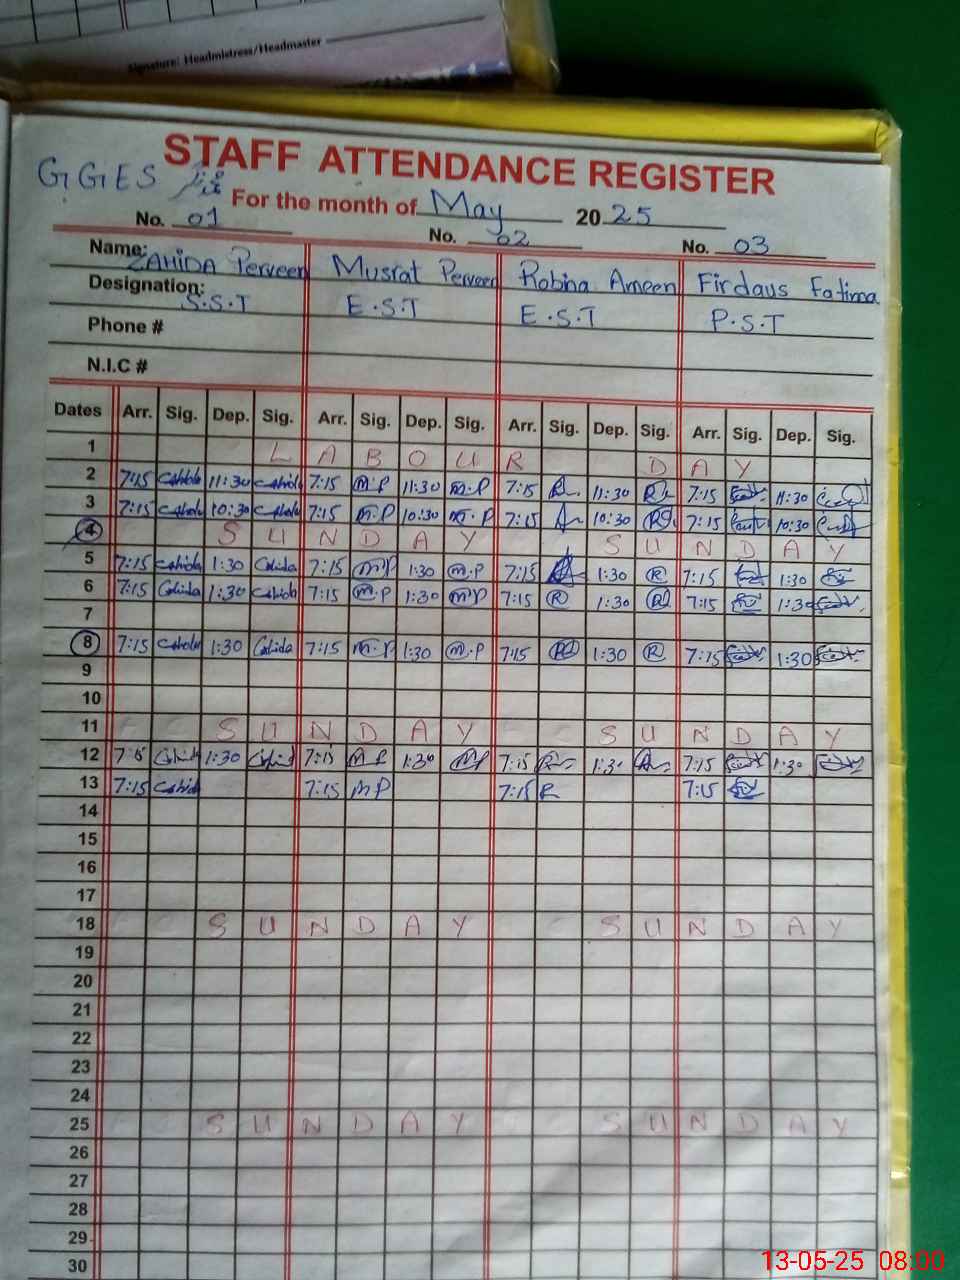 Signature: Headmistress/Headmaster
STAFF ATTENDANCE REGISTER
G GES
For the month of May 2025
No. 01 No. 02 No. 03
Name: ZAHIDA Perveen Musrat Perveen Robina Ameen Firdaus Fatima
Designation: S.S.T E.S.T E.S.T P.S.T
Phone #
N.I.C #
Dates Arr. Sig. Dep. Sig. Arr. Sig. Dep. Sig. Arr. Sig. Dep. Sig. Arr. Sig. Dep. Sig.
1 L A B O U R D A Y
2 7:15 11:30 7:15 M.P 11:30 M.P 7:15 11:30 7:15 11:30
3 7:15 10:30 7:15 M.P 10:30 M.P 7:15 10:30 7:15 10:30
4 S U N D A Y S U N D A Y
5 7:15 1:30 7:15 M.P 1:30 M.P 7:15 1:30 R 7:15 1:30
6 7:15 1:30 7:15 M.P 1:30 M.P 7:15 R 1:30 R 7:15 1:30
7
8 7:15 1:30 7:15 M.P 1:30 M.P 7:15 1:30 R 7:15 1:30
9
10
11 S U N D A Y S U N D A Y
12 7:15 1:30 7:15 M.P 1:30 7:15 1:30 7:15 1:30
13 7:15 7:15 M P 7:15 R 7:15
14
15
16
17
18 S U N D A Y S U N D A Y
19
20
21
22
23
24
25 S U N D A Y S U N D A Y
26
27
28
29
30
13-05-25 08:00